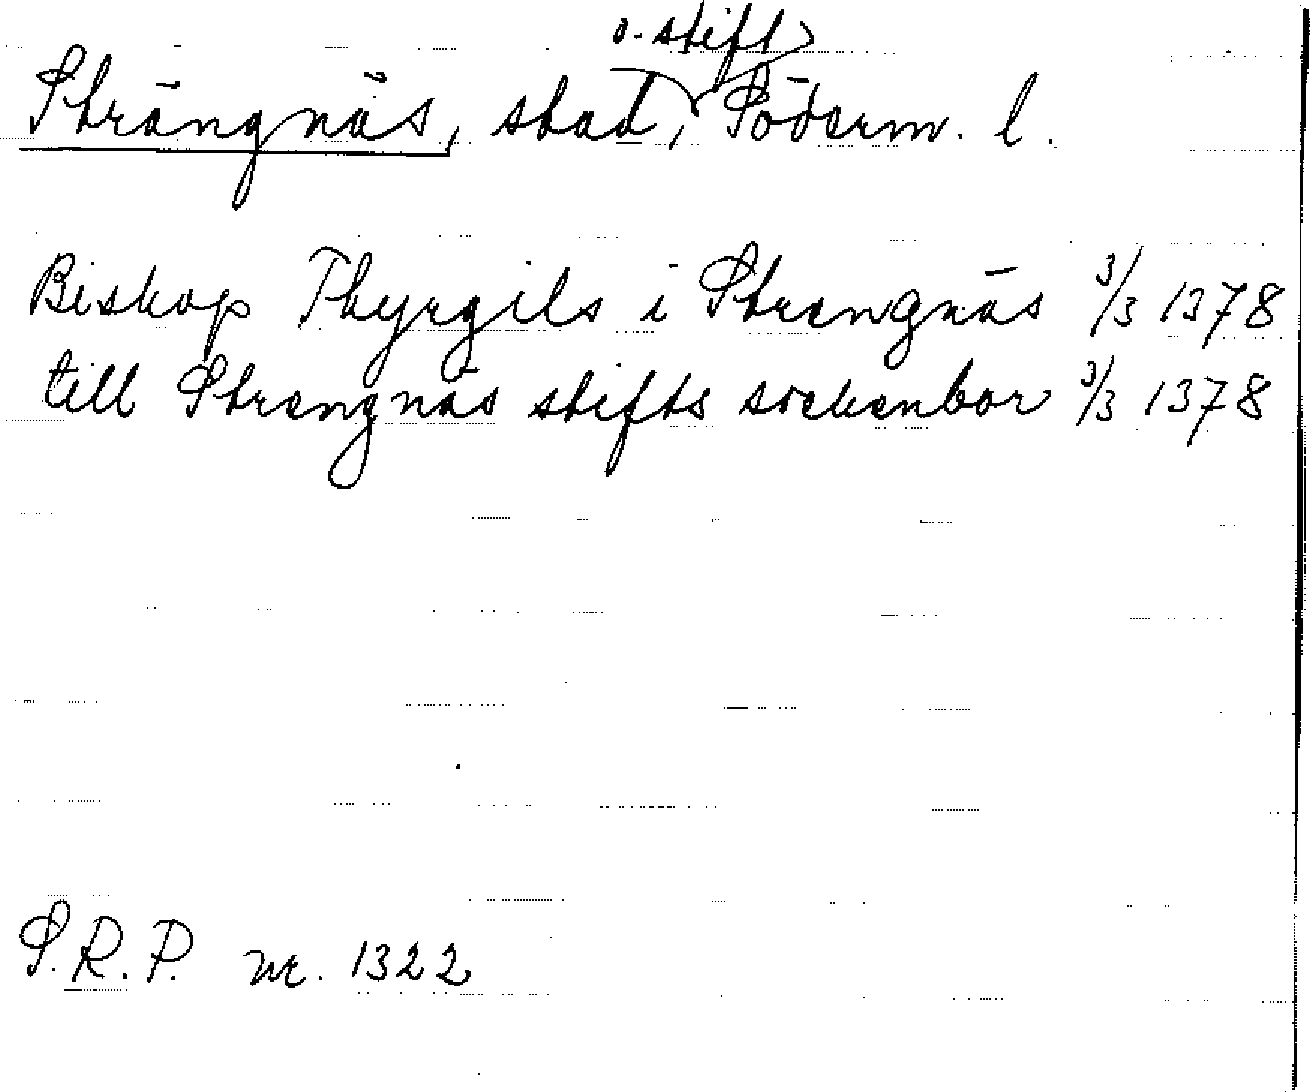 Strängnäs, stad, o. stift Söderm. l.
Biskop Thyrgils i Strengnäs 3/3 1378
till Strengnäs stifts sockenbor 3/3 1378
S.R.P. nr. 1322